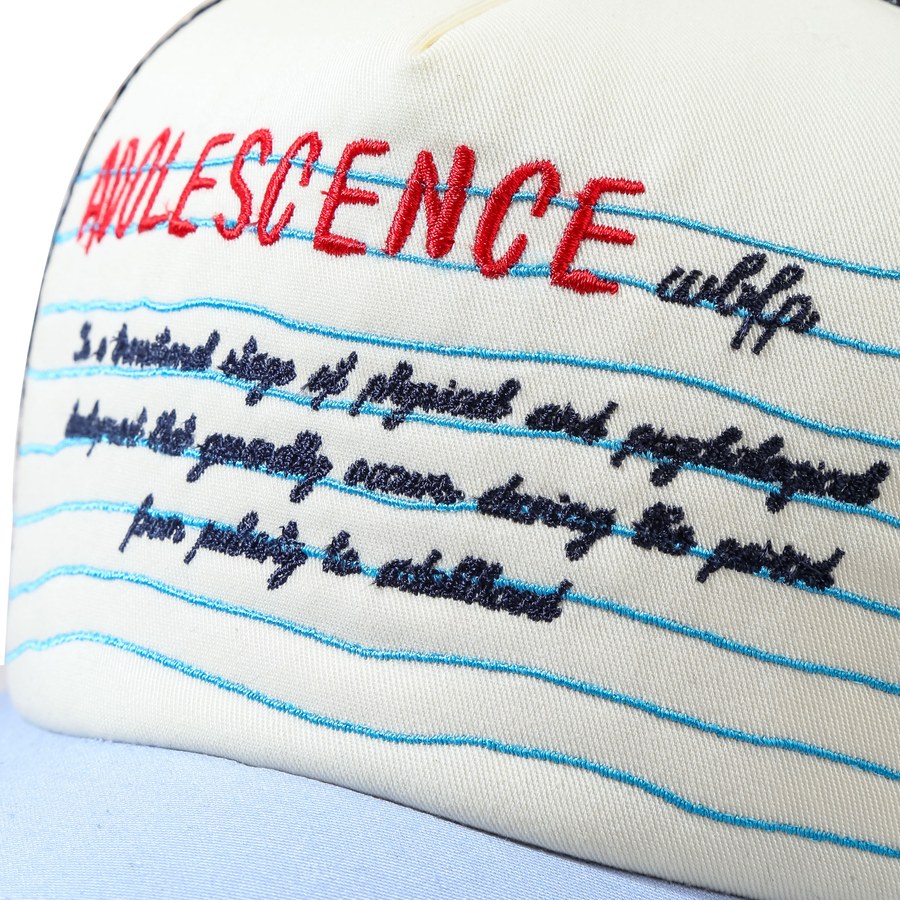 ADOLESCENCE wbfp
Is a transitional stage of physical and psychological
that generally occurs during the period
from puberty to adulthood